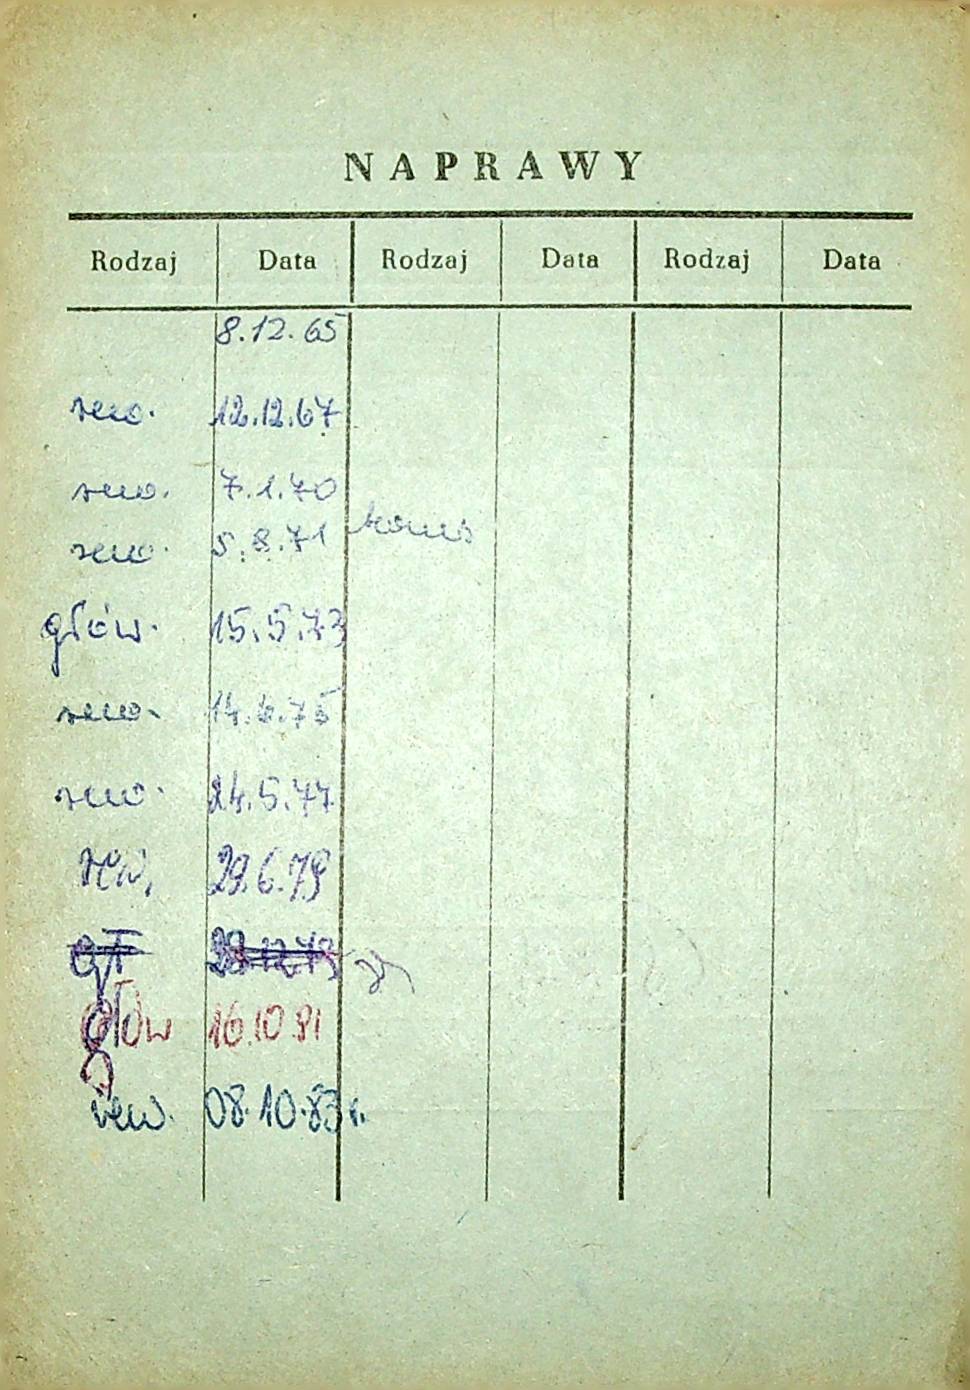 NAPRAWY
Rodzaj Data Rodzaj Data Rodzaj Data
8.12.65
rew. 12.12.67
rew. 7.1.70
rew. 5.8.71
głów. 15.5.73
rew. 14.6.75
rew. 24.5.77
rew. 29.6.79
gł
głów 16.10.81
rew. 08.10.83r.